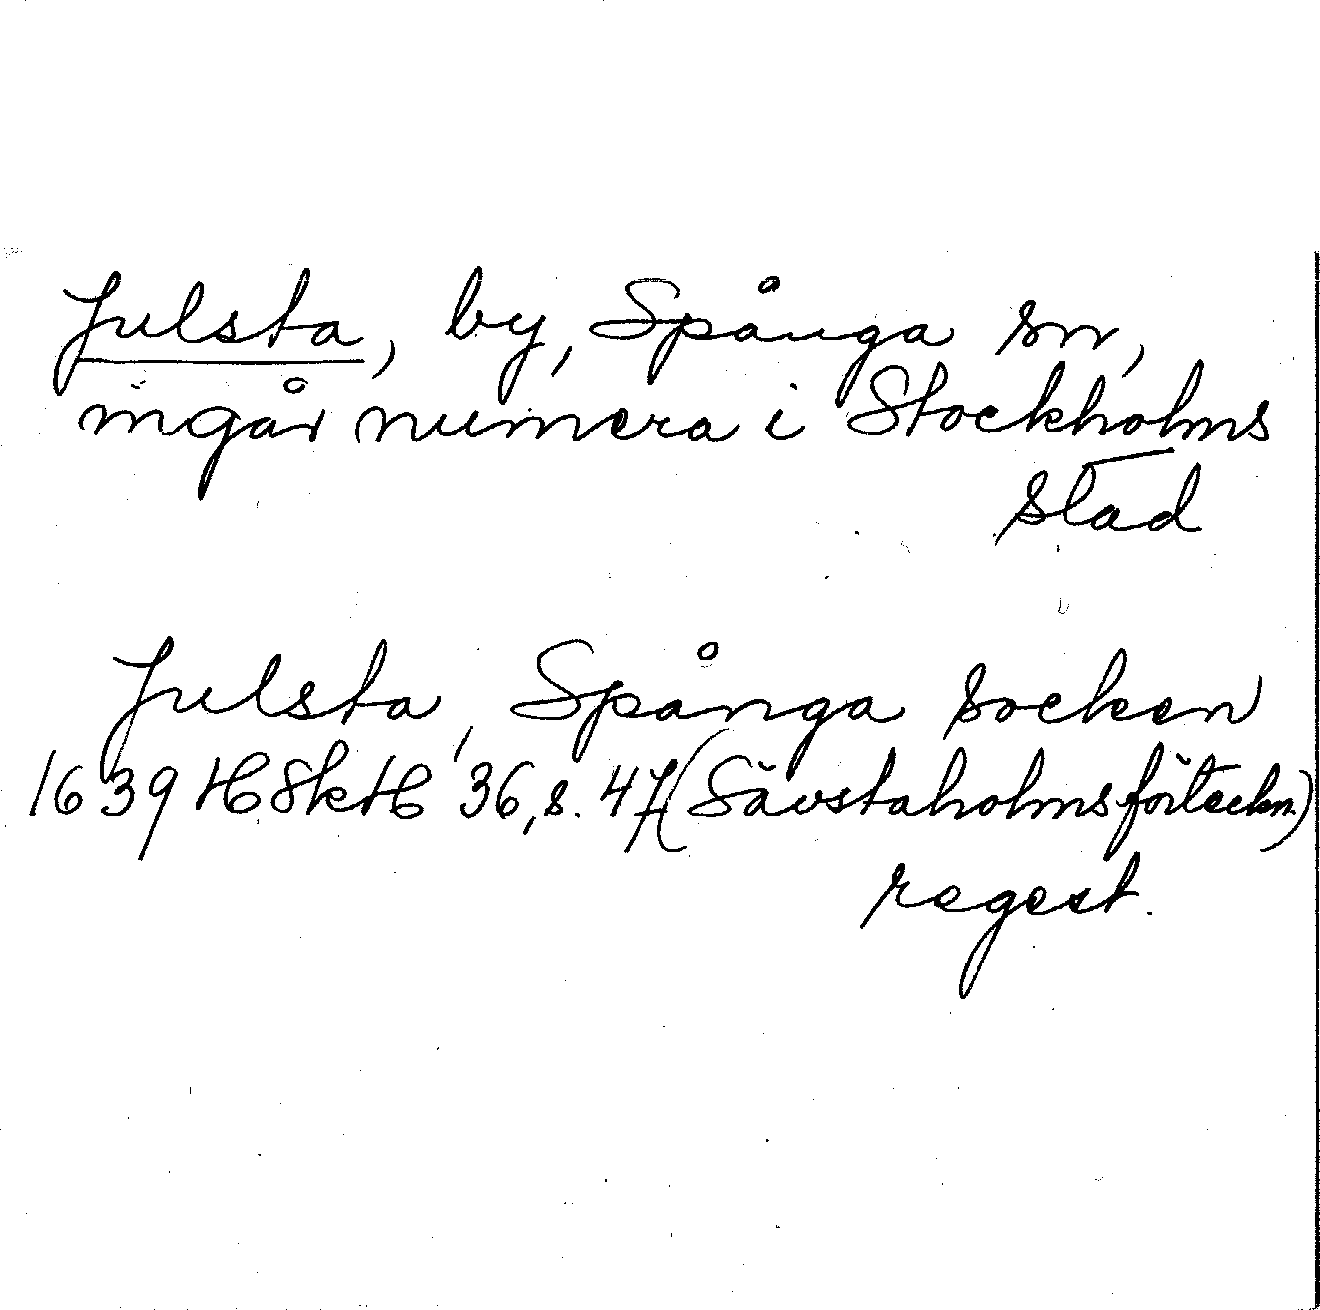 Julsta, by, Spånga sn,
ingår numera i Stockholms
stad
Julsta, Spånga socken
1639 HSkH 36, s. 47 (Sävstaholmsförteckn.)
regest.